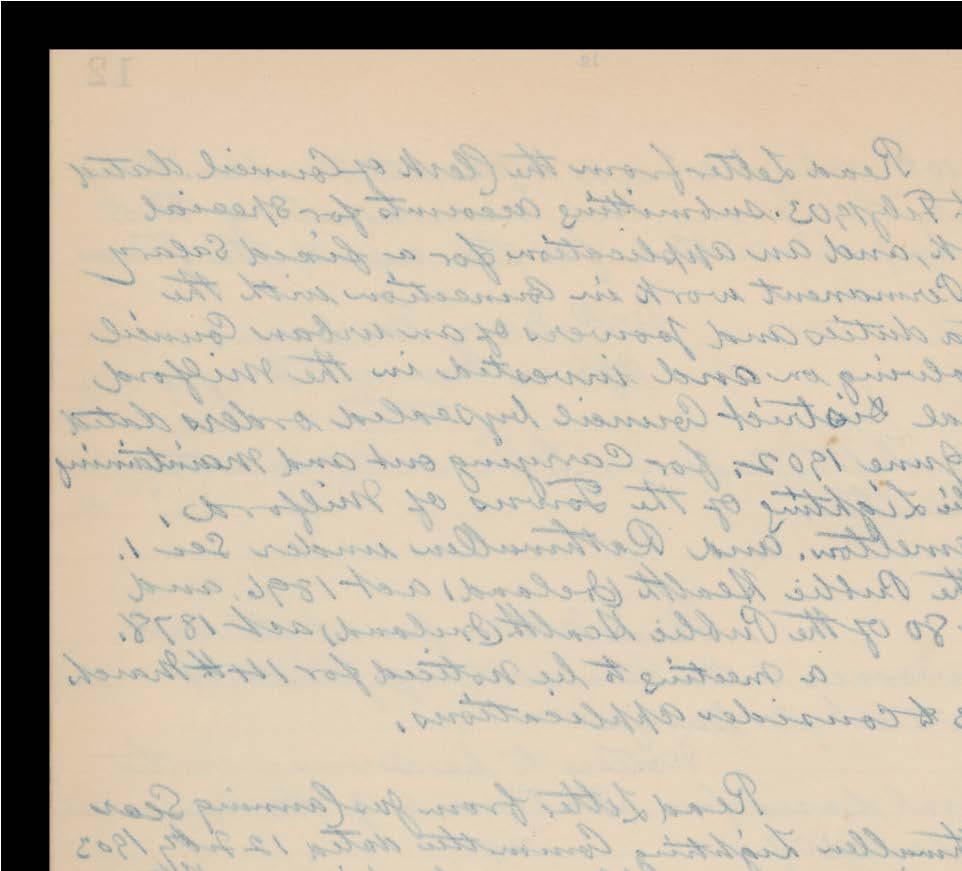 12
12
Read Letter from the Clerk of Council dated
Feby 1903. submitting accounts for special
and an application for a fixed Salary
Permanent work in Connection with the
duties and powers of an urban Council
on and invested in the Milford
District Council by sealed orders dated
June 1902, for Carrying out and maintaining
Lighting of the Towns of Milford,
and Rathmullen under Sec 1.
Public Health (Ireland) act 1896 and
80 of the Public Health (Ireland) act 1878.
a meeting to be noticed for 14th March
to Consider applications.
Read Letter from Jas Canning Secr
Lighting Committee dated 12 Feby 1903